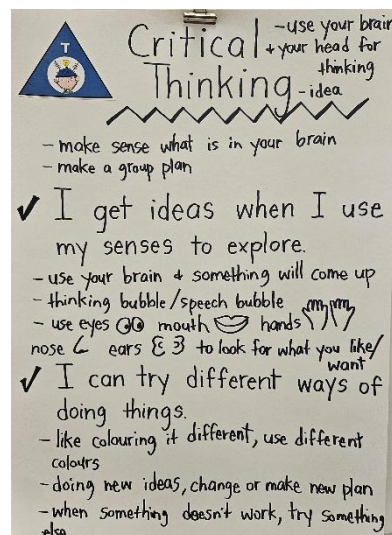 T
Critical
Thinking
- use your brain
+ your head for
thinking
- idea
- make sense what is in your brain
- make a group plan
✓ I get ideas when I use
my senses to explore.
- use your brain + something will come up
- thinking bubble/speech bubble
- use eyes mouth hands
nose ears to look for what you like/
want
✓ I can try different ways of
doing things.
- like colouring it different, use different
colours
- doing new ideas, change or make new plan
- when something doesn't work, try something
else